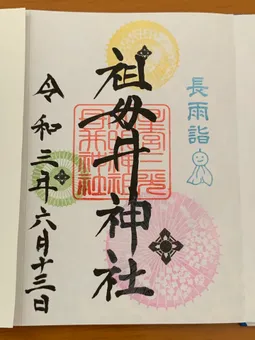 長雨詣
祖母井神社
令和三年六月十三日